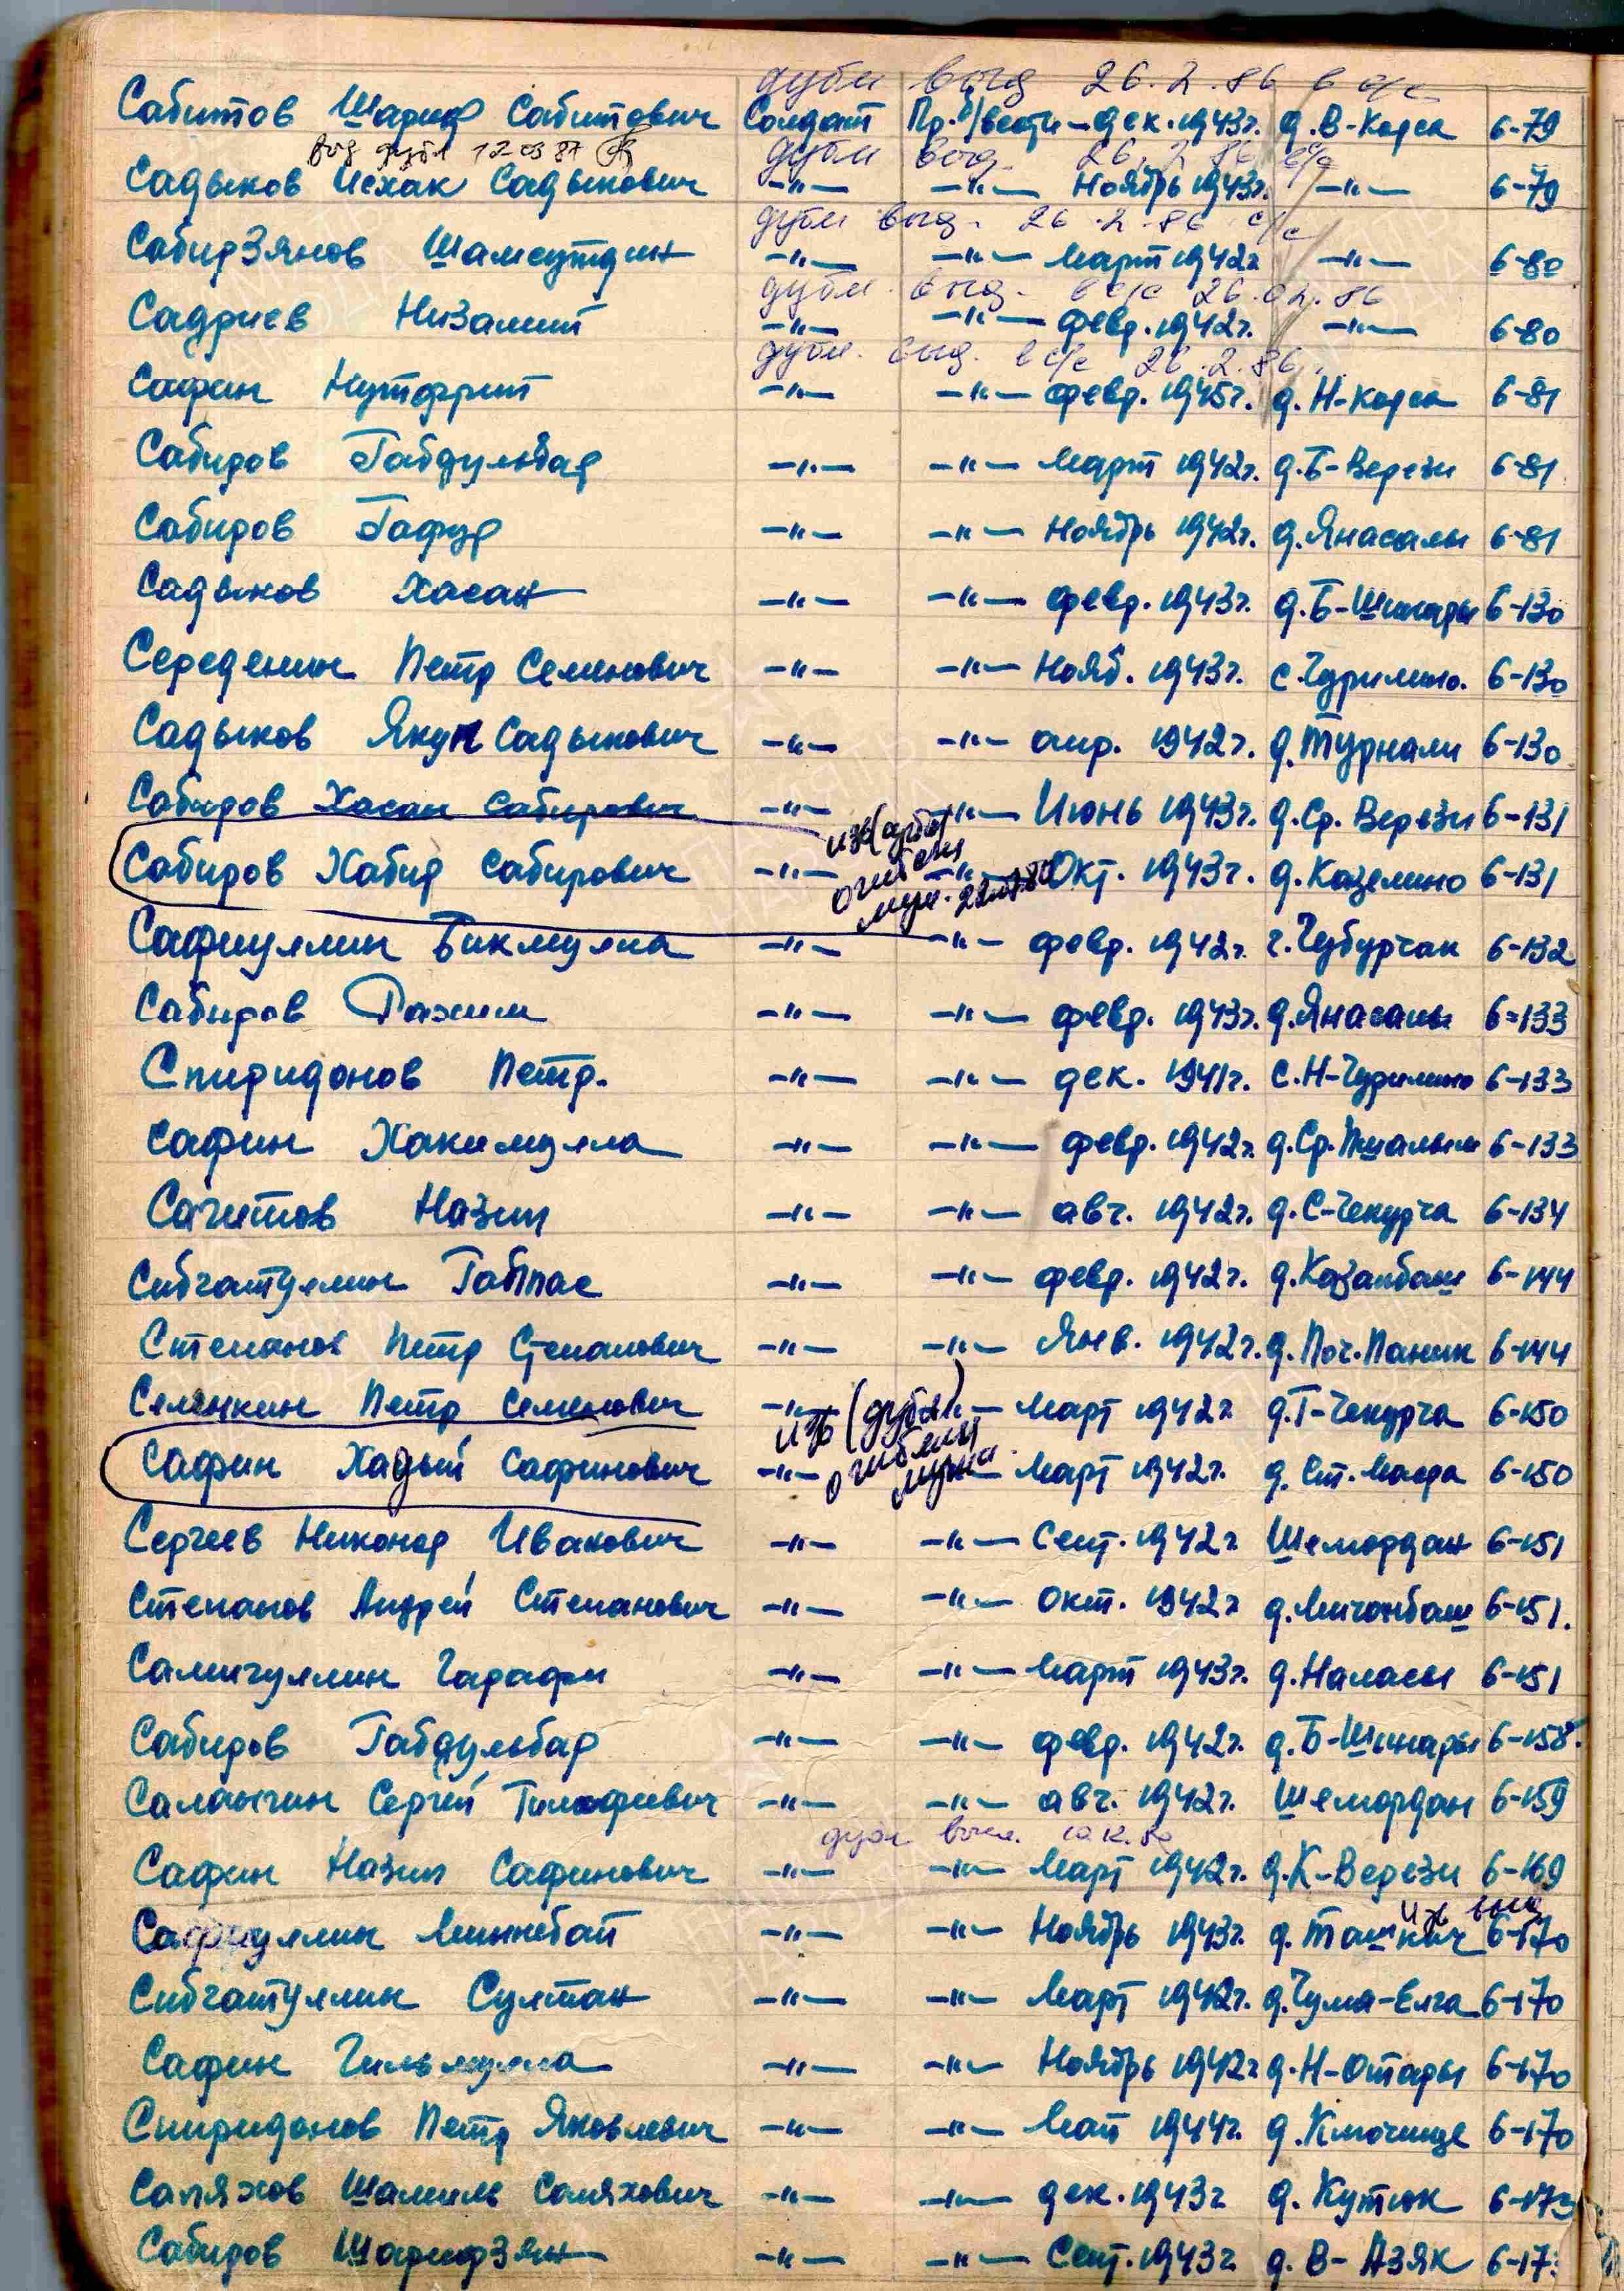 дубл выд 26.2.86 в с/с
Сабитов Шариф Сабитович Солдат Пр. б/вести - дек. 1943г. д. В-Корса 6-79
дубл 12-03 87 дубл выд. 26.2.86 с/с
Садыков Исхак Садыкович -"- -"- Ноябрь 1943г. -"- 6-79
дубл выд. 26.2.86 с/с
Сабирзянов Шамсутдин -"- -"- Март 1942г -"- 6-80
дубл. выд. в с/с 26.02.86
Садриев Низамит -"- -"- февр. 1942г. -"- 6-80
дубл. выд. в с/с 26.2.86.
Сафин Нутфрит -"- -"- февр. 1945г. д. Н-Корса 6-81
Сабиров Габдульбар -"- -"- Март 1942г. д. Б-Верези 6-81
Сабиров Гафур -"- -"- Ноябрь 1942г. д. Янасалы 6-81
Садыков Хасан -"- -"- февр. 1943г. д. Б-Шинары 6-130
Середенин Петр Семенович -"- -"- Нояб. 1943г. с. Чурилино. 6-130
Садыков Якуп Садыкович -"- -"- апр. 1942г. д. Турнали 6-130
Сабиров Хасан Сабирович -"- -"- Июнь 1943г. д. Ср. Верези 6-131
изв (дубл)
Сабиров Хабир Сабирович -"- -"- Окт. 1943г. д. Казелино 6-131
о гибели
муж.
Сафиуллин Бикмулла -"- -"- февр. 1942г. г. Чубурчак 6-132
Сабиров Рахим -"- -"- февр. 1943г. д. Янасалы 6-133
Спиридонов Петр. -"- -"- дек. 1941г. с. Н-Чурилино 6-133
Сафин Хакимулла -"- -"- февр. 1942г. д. Ср. Пшалым 6-133
Сагитов Назип -"- -"- авг. 1942г. д. С-Чекурча 6-134
Сибгатуллин Габпас -"- -"- февр. 1942г. д. Казанбаш 6-144
Степанов Петр Степанович -"- -"- Янв. 1942г. д. Поч. Паник 6-144
Семенкин Петр Семенович -"- -"- Март 1942г д. Т-Чекурча 6-150
изв (дубл)
о гибели
мужа
Сафин Хадый Сафинович -"- -"- Март 1942г. д. Ст. Масра 6-150
Сергеев Никонор Иванович -"- -"- Сент. 1942г Шемордан 6-151
Степанов Андрей Степанович -"- -"- окт. 1942г д. Мичанбаш 6-151.
Самигуллин Гарафи -"- -"- Март 1943г. д. Наласы 6-151
Сабиров Габдульбар -"- -"- февр. 1942г. д. Б-Шинары 6-158.
Салангин Сергей Тимофеевич -"- -"- авг. 1942г. Шемордан 6-159
дубл
Сафин Назип Сафинович -"- -"- Март 1942г. д. К-Верези 6-169
изв выд
Сафиуллин Миннебай -"- -"- Ноябрь 1943г. д. Ташкич 6-170
Сибгатуллин Султан -"- -"- Март 1942г. д. Чума-Елга 6-170
Сафин Гильмулла -"- -"- Ноябрь 1942г д. Н-Отары 6-170
Спиридонов Петр Яковлевич -"- -"- Май 1944г. д. Ключище 6-170
Саляхов Шамиль Саляхович -"- -"- дек. 1943г д. Кутюк 6-173
Сабиров Шарифзян -"- -"- Сент. 1943г д. В-Азяк 6-17